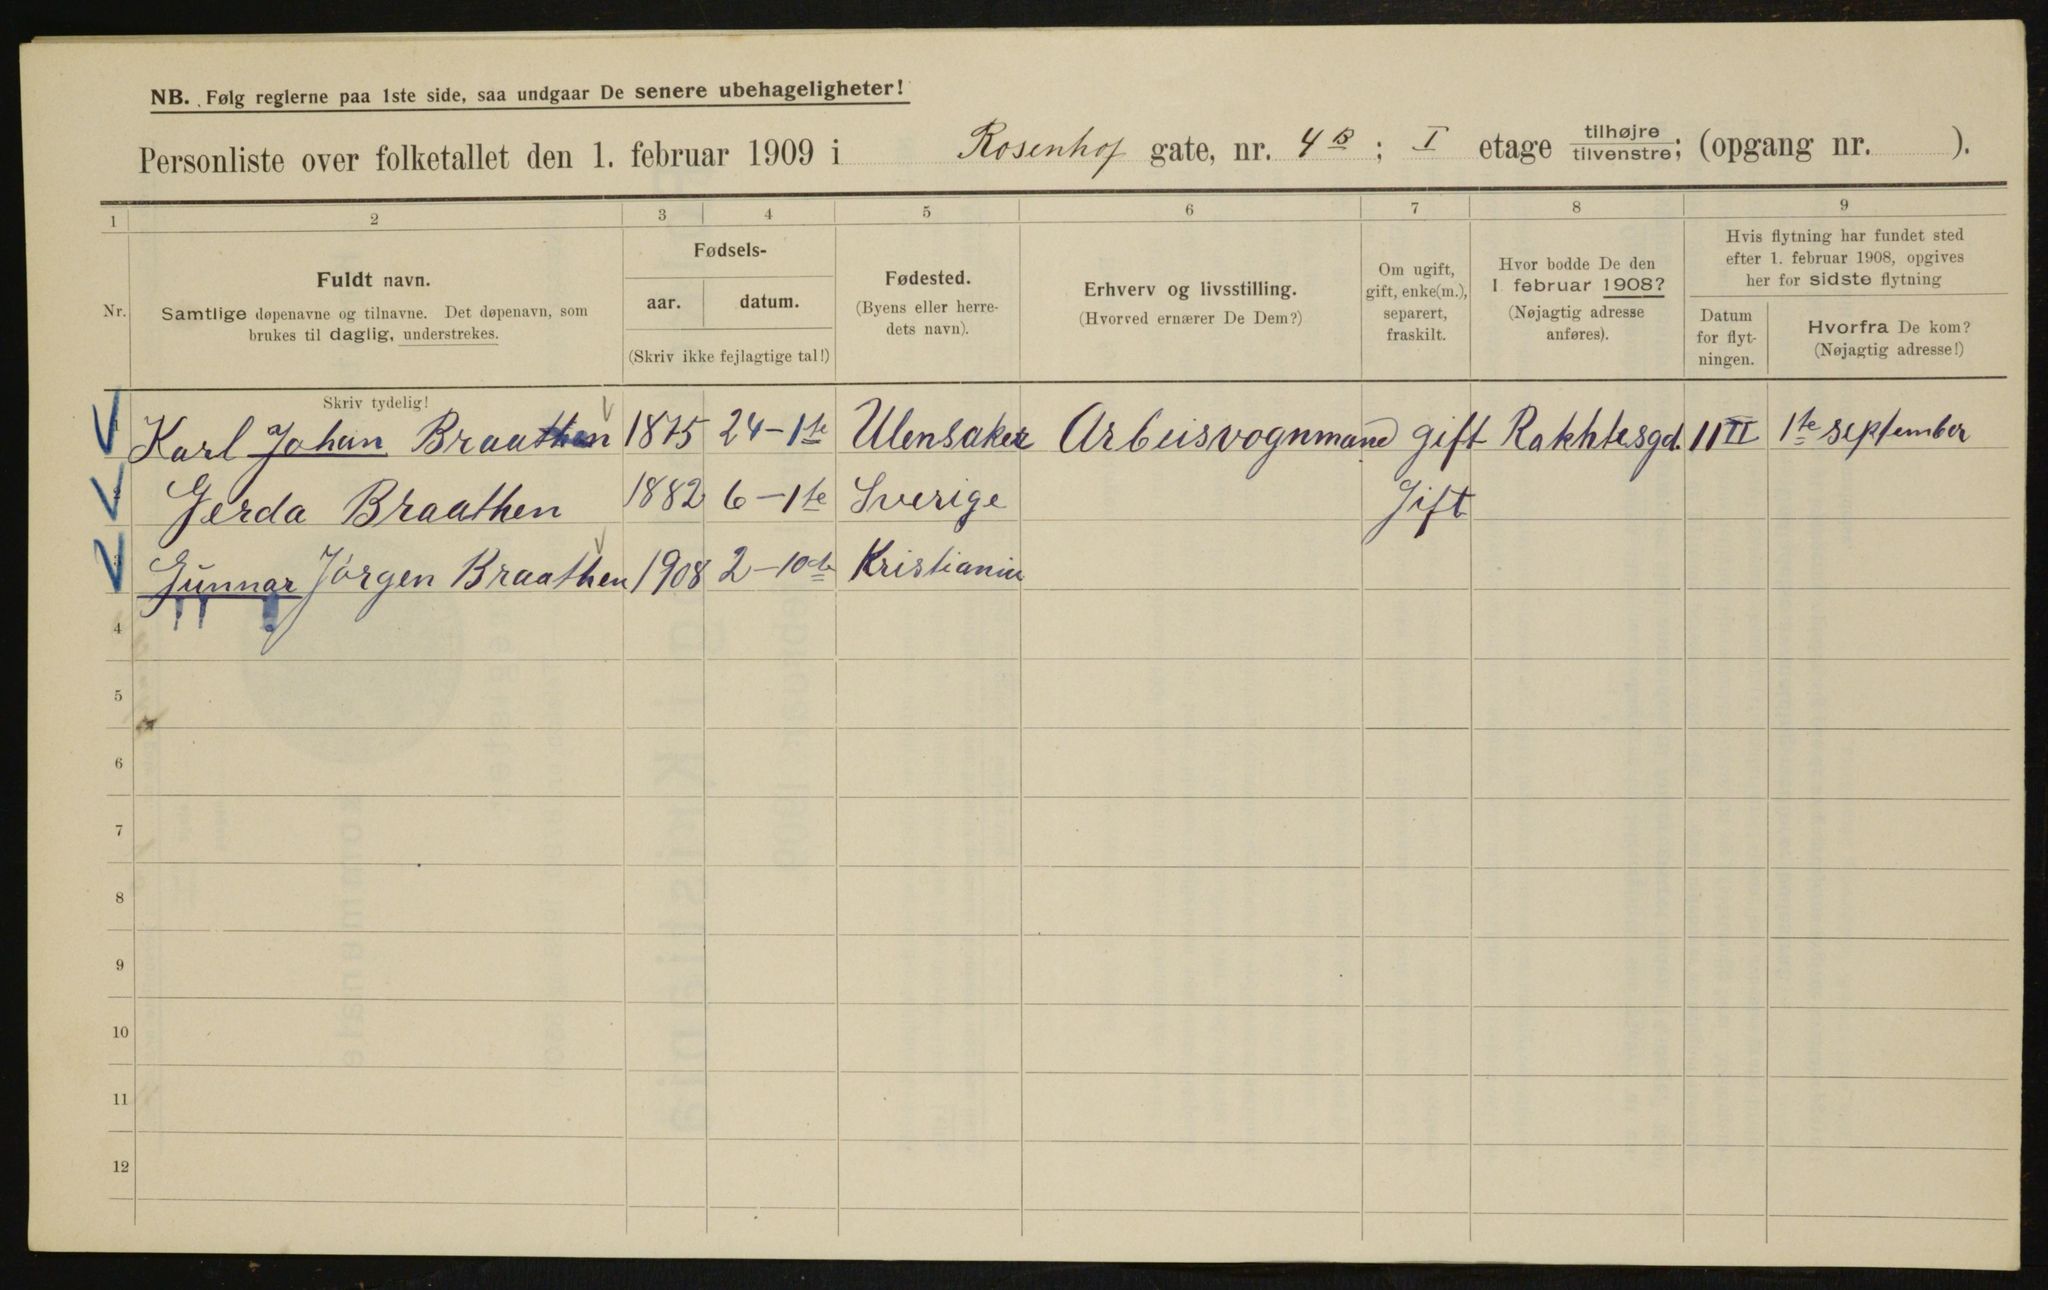 NB. Følg reglerne paa 1ste side, saa undgaar De senere ubehageligheter!
Personliste over folketallet den 1. februar 1909 i Rosenhof gate, nr. 4 B ; I etage tilhøjre tilvenstre; (opgang nr. ).
1 2 3 4 5 6 7 8 9
Nr.
Fuldt navn.
Samtlige døpenavne og tilnavne. Det døpenavn, som
brukes til daglig, understrekes.
Fødsels-
aar. datum.
(Skriv ikke fejlagtige tal!)
Fødested.
(Byens eller herre-
dets navn).
Erhverv og livsstilling.
(Hvorved ernærer De Dem?)
Om ugift,
gift, enke(m.),
separert,
fraskilt.
Hvor bodde De den
1 februar 1908?
(Nøjagtig adresse
anføres).
Hvis flytning har fundet sted
efter 1. februar 1908, opgives
her for sidste flytning
Datum
for flyt-
ningen.
Hvorfra De kom?
(Nøjagtig adresse!)
Skriv tydelig!
Karl Johan Braathen 1875 24-1ste Ulensaker Arbeisvognmand gift Rakhtesgd. 11 II 1ste september
Gerda Braathen 1882 6-1te Sverige Gift
Gunnar Jørgen Braathen 1908 2-10de Kristiania
4
5
6
7
8
9
10
11
12